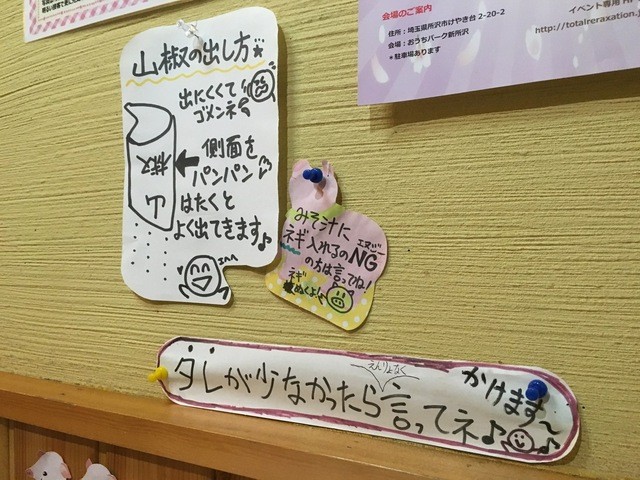 会場のご案内
住所：埼玉県所沢市けやき台2-20-2
会場：おうちパーク新所沢
＊駐車場あります
イベント専用
http://totalreraxation.
山椒の出し方
出にくくて
ゴメンネ
側面を
パンパン
はたくと
よく出てきます♪
山椒
みそ汁に
ネギ入れるのNG
エヌジー
の方は言ってね!
ネギ
ぬくよ!
タレが少なかったら言ってネ♪
えんりょなく
かけます〜♪